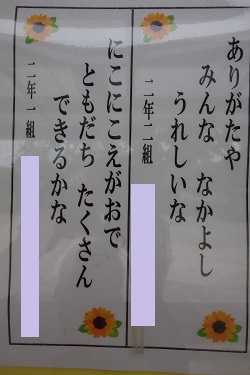 ありがたや
みんな なかよし
うれしいな
二年二組
にこにこえがおで
ともだち たくさん
できるかな
二年一組